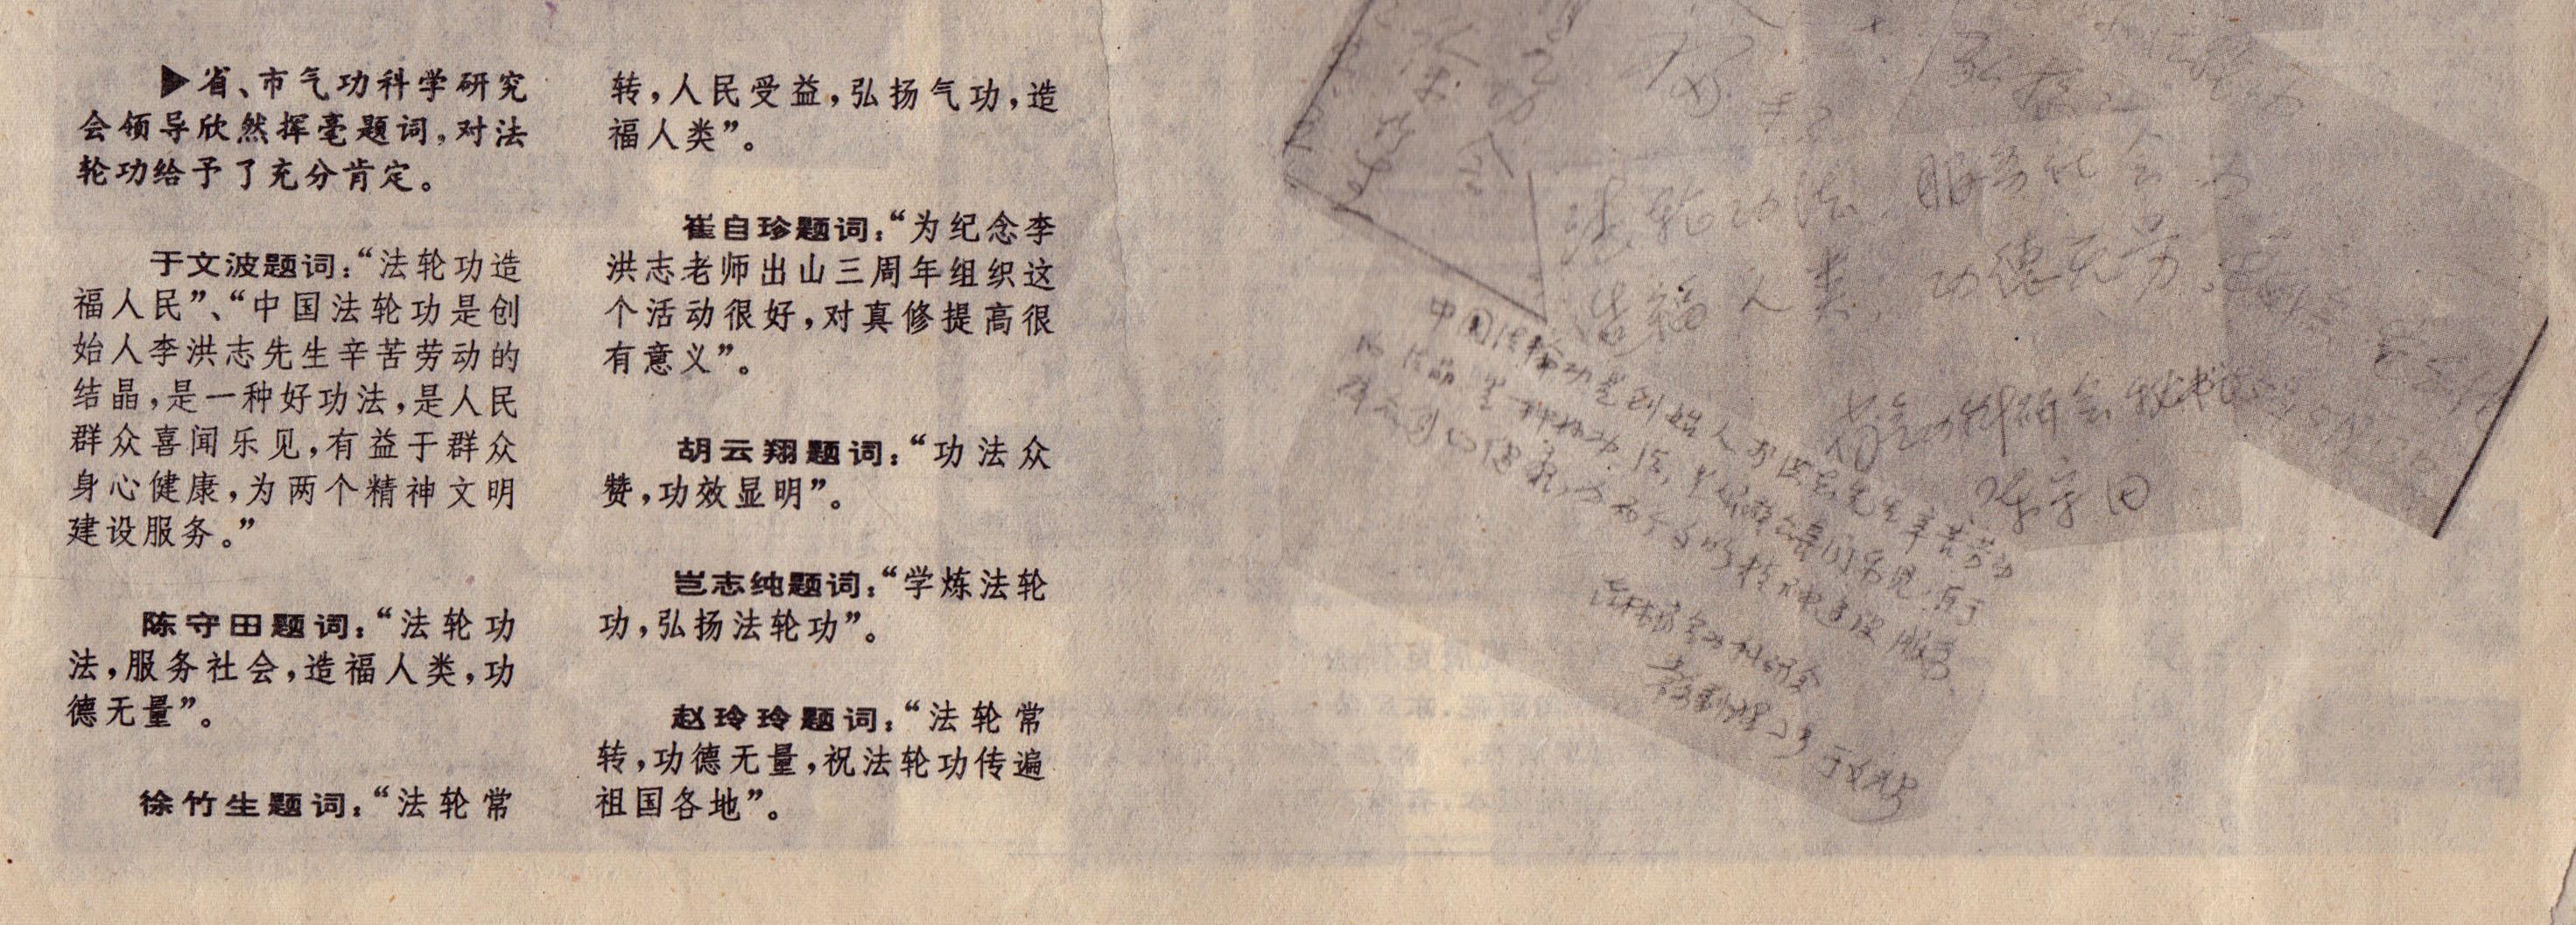 ▶省、市气功科学研究
会领导欣然挥毫题词,对法
轮功给予了充分肯定。
于文波题词:“法轮功造
福人民”、“中国法轮功是创
始人李洪志先生辛苦劳动的
结晶,是一种好功法,是人民
群众喜闻乐见,有益于群众
身心健康,为两个精神文明
建设服务。”
陈守田题词:“法轮功
法,服务社会,造福人类,功
德无量”。
徐竹生题词:“法轮常
转,人民受益,弘扬气功,造
福人类”。
崔自珍题词:“为纪念李
洪志老师出山三周年组织这
个活动很好,对真修提高很
有意义”。
胡云翔题词:“功法众
赞,功效显明”。
岂志纯题词:“学炼法轮
功,弘扬法轮功”。
赵玲玲题词:“法轮常
转,功德无量,祝法轮功传遍
祖国各地”。
法轮功法 服务社会
造福人类, 功德无
省气功科研会秘书
陈守田
中国法轮功是创始人李洪志先生辛苦劳动
的结晶 是一种好功法,
服务
吉林省气功科研会
于文波